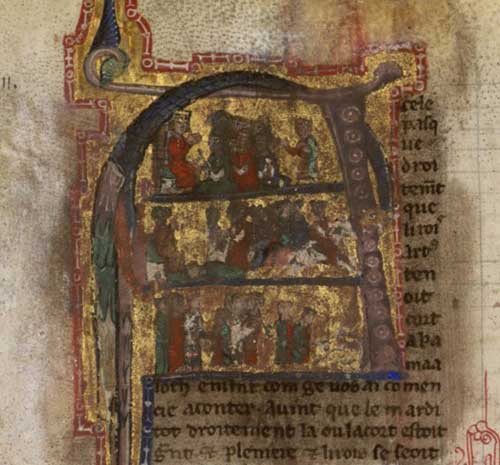 II.
A
cele
pasq
ue
droi
temt
que
li roiꝰ
artꝰ
ten
oit
cort
aka
maa
loth enint com ge uos ai comen
cie aconter. Auint que le mardi
tot droitement la ou la cort estoit
gnt & pleniere & li rois se seoit